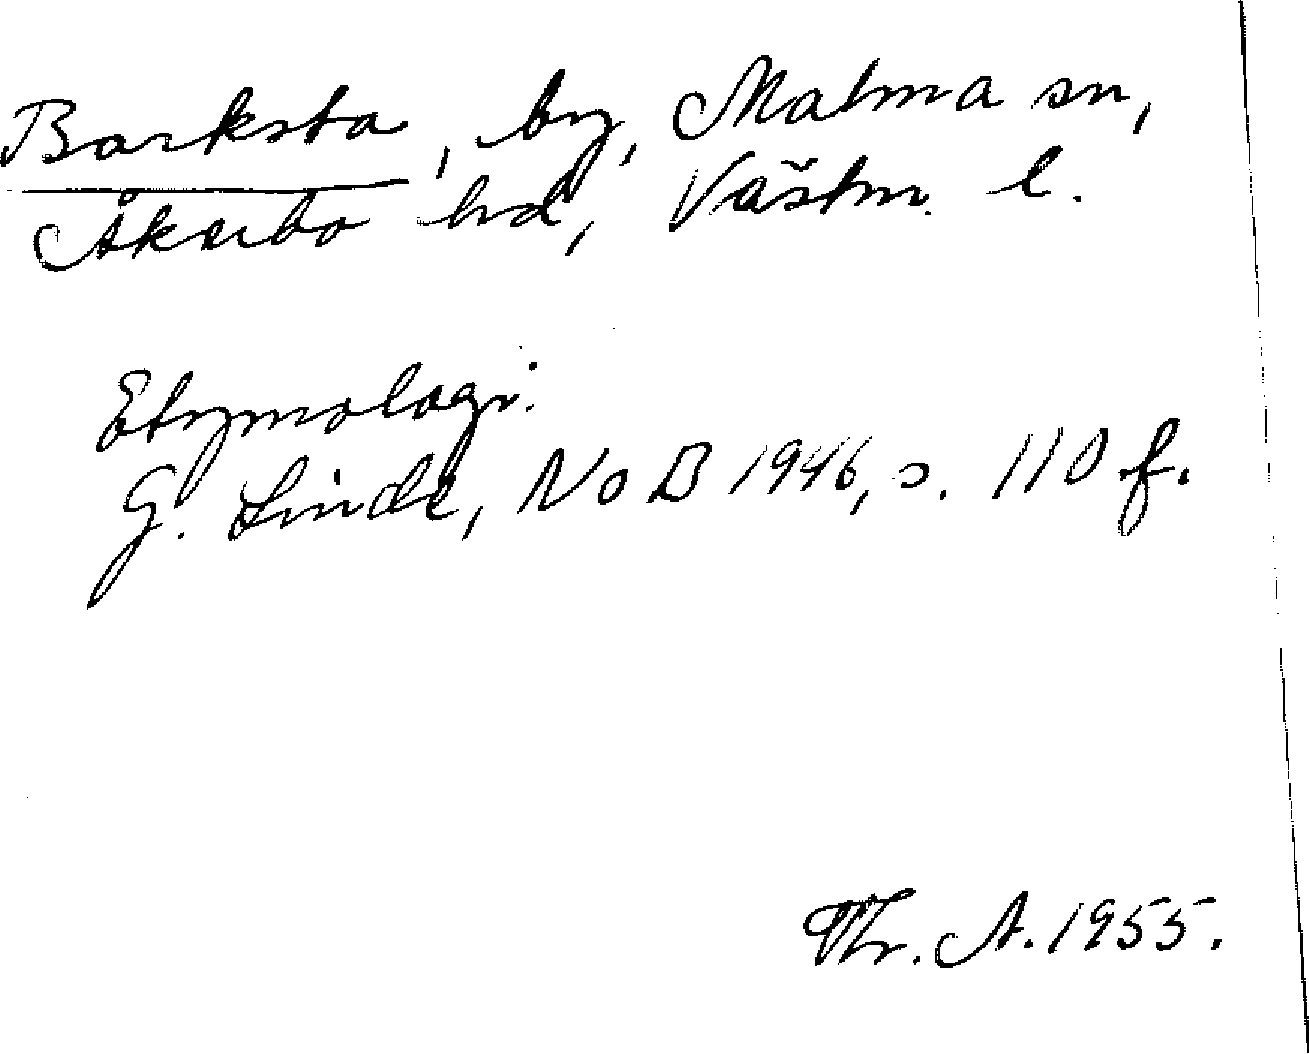 Barksta, by, Malma sn,
Åkerbo hd, Västm. l.
Etymologi.
G. Linde, NoB 1946, s. 110 f.
Th. A. 1955.